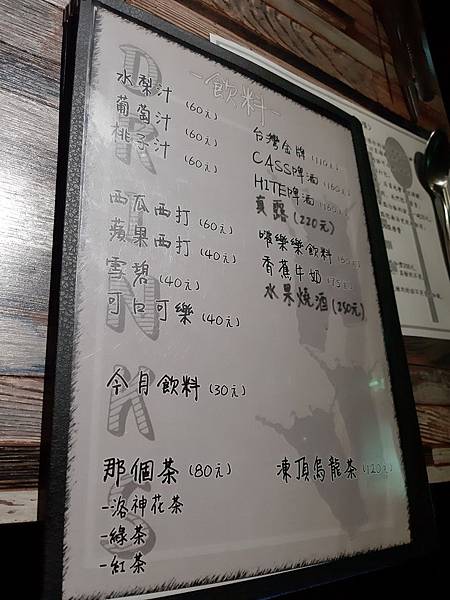 DRINKS
-飲料-
水梨汁 (60元)
葡萄汁 (60元)
桃子汁 (60元)
西瓜西打 (60元)
蘋果西打 (40元)
雪碧 (40元)
可口可樂 (40元)
今月飲料 (30元)
那個茶 (80元)
-洛神花茶
-綠茶
-紅茶
台灣金牌 (110元)
CASS啤酒 (160元)
HITE啤酒 (160元)
真露 (220元)
嚼樂樂飲料 (60元)
香蕉牛奶 (75元)
水果燒酒 (250元)
凍頂烏龍茶 (120元)